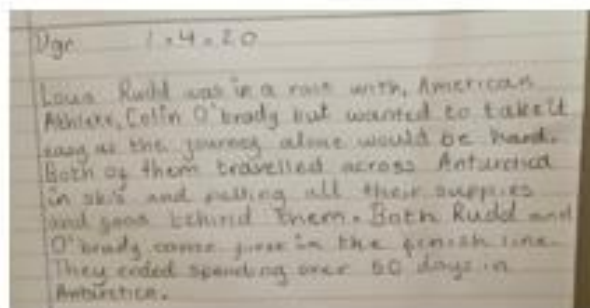 Dgr 1.4.20
Louis Rudd was in a race with, American
Athlete, Colin O'brady but wanted to take it
easy as the journey alone would be hard.
Both of them travelled across Antarctica
in skis and pulling all their supplies
and food behind them. Both Rudd and
O'brady came first in the finish line.
They ended spending over 50 days in
Antarctica.